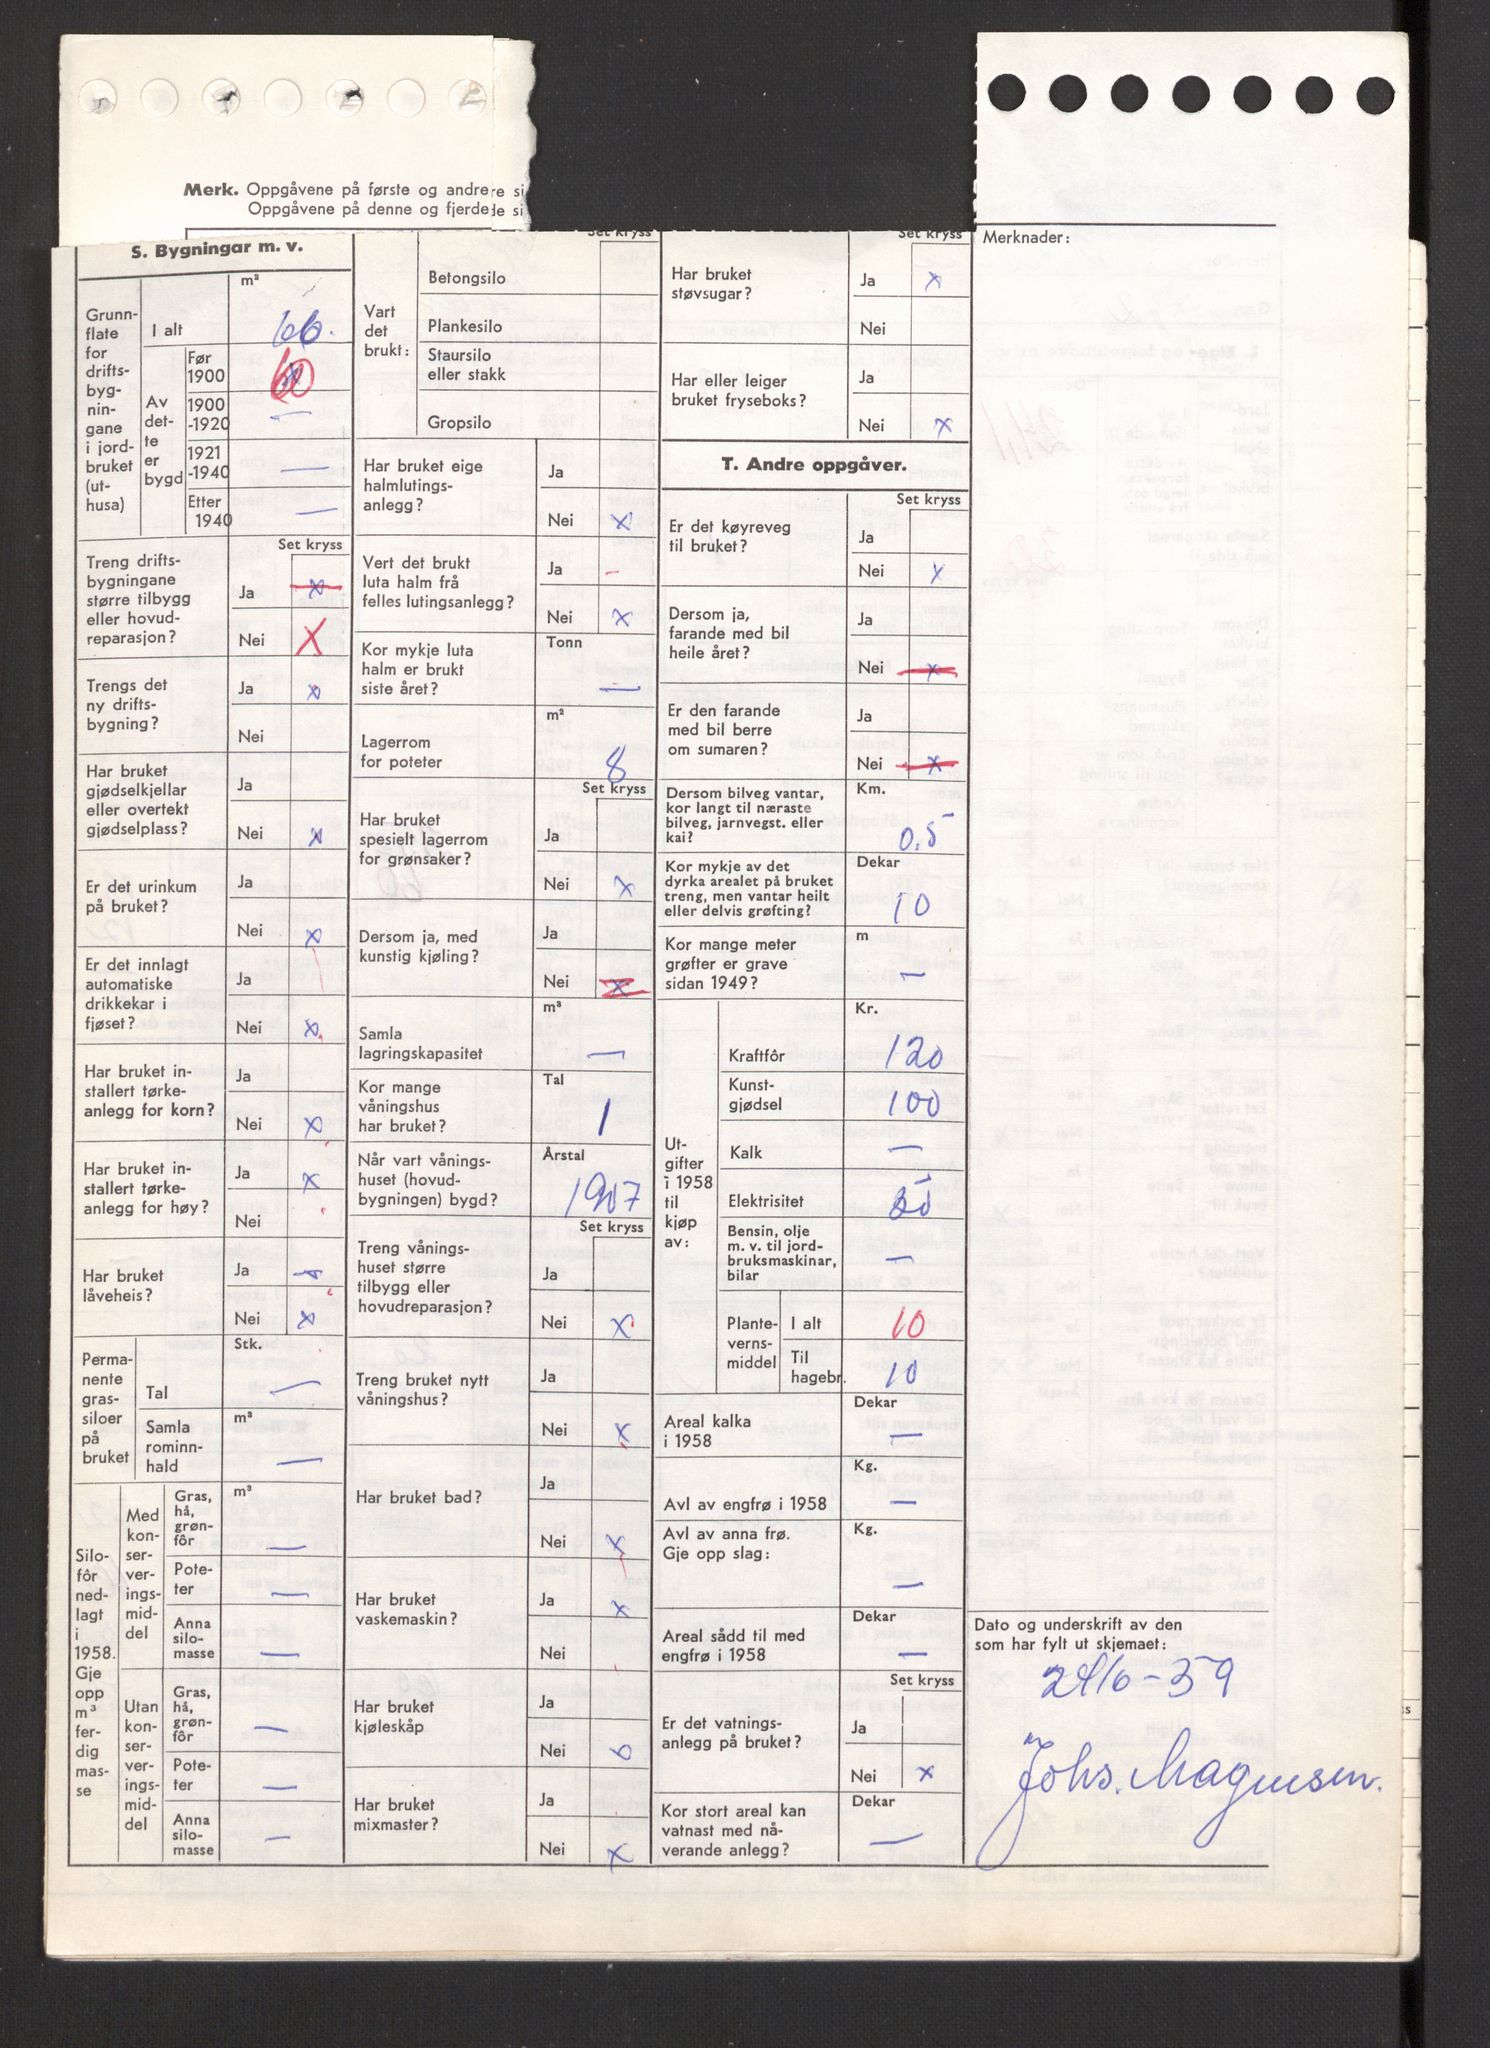 Merk. Oppgåvene på første og andre re si
Oppgåvene på denne og fjerde de si
S. Bygningar m. v.
Grunn-
flate
for
drifts-
byg-
nin-
gane
i jord-
bruket
(ut-
husa)
m²
I alt 66.
Av
det-
te
er
bygd
Før
1900 60
1900
-1920 —
1921
-1940 —
Etter
1940 —
Set kryss
Treng drifts-
bygningane
større tilbygg
eller hovud-
reparasjon?
Ja x
Nei X
Trengs det
ny drifts-
bygning?
Ja x
Nei
Har bruket
gjødselkjellar
eller overtekt
gjødselplass?
Ja
Nei x
Er det urinkum
på bruket?
Ja
Nei x
Er det innlagt
automatiske
drikkekar i
fjøset?
Ja
Nei x
Har bruket in-
stallert tørke-
anlegg for korn?
Ja
Nei x
Har bruket in-
stallert tørke-
anlegg for høy?
Ja x
Nei
Har bruket
låveheis?
Ja
Nei x
Perma-
nente
gras-
siloer
på
bruket
Stk.
Tal —
m³
Samla
rominn-
hald —
Silo-
fôr
ned-
lagt
i
1958.
Gje
opp
m³
fer-
dig
mas-
se
Med
kon-
ser-
ver-
ings-
mid-
del
m³
Gras,
hå,
grøn-
fôr —
Pote-
ter —
Anna
silo-
masse —
Utan
kon-
ser-
ver-
ings-
mid-
del
Gras,
hå,
grøn-
fôr —
Pote-
ter —
Anna
silo-
masse —
Set kryss
Vart
det
brukt:
Betongsilo
Plankesilo
Staursilo
eller stakk
Gropsilo
Har bruket eige
halmlutings-
anlegg?
Ja
Nei x
Vert det brukt
luta halm frå
felles lutingsanlegg?
Ja –
Nei x
Kor mykje luta
halm er brukt
siste året?
Tonn
—
Lagerrom
for poteter
m²
8
Set kryss
Har bruket
spesielt lagerrom
for grønsaker?
Ja
Nei x
Dersom ja, med
kunstig kjøling?
Ja
Nei x
Samla
lagringskapasitet
m³
—
Kor mange
våningshus
har bruket?
Tal
1
Når vart vånings-
huset (hovud-
bygningen) bygd?
Årstal
1907
Set kryss
Treng vånings-
huset større
tilbygg eller
hovudreparasjon?
Ja
Nei x
Treng bruket nytt
våningshus?
Ja
Nei x
Har bruket bad?
Ja
Nei x
Har bruket
vaskemaskin?
Ja x
Nei
Har bruket
kjøleskåp
Ja
Nei
Har bruket
mixmaster?
Ja
Nei x
Set kryss
Har bruket
støvsugar?
Ja x
Nei
Har eller leiger
bruket fryseboks?
Ja
Nei x
T. Andre oppgåver.
Set kryss
Er det køyreveg
til bruket?
Ja
Nei x
Dersom ja,
farande med bil
heile året?
Ja
Nei x
Er den farande
med bil berre
om sumaren?
Ja
Nei x
Dersom bilveg vantar,
kor langt til næraste
bilveg, jarnvegst. eller
kai?
Km.
0,5
Kor mykje av det
dyrka arealet på bruket
treng, men vantar heilt
eller delvis grøfting?
Dekar
10
Kor mange meter
grøfter er grave
sidan 1949?
m
—
Ut-
gifter
i 1958
til
kjøp
av:
Kr.
Kraftfôr 120
Kunst-
gjødsel 100
Kalk —
Elektrisitet
Bensin, olje
m. v. til jord-
bruksmaskinar,
bilar —
Plante-
verns-
middel
I alt 10
Til
hagebr. 10
Areal kalka
i 1958
Dekar
—
Avl av engfrø i 1958
Kg.
—
Avl av anna frø.
Gje opp slag:
Kg.
—
Areal sådd til med
engfrø i 1958
Dekar
—
Set kryss
Er det vatnings-
anlegg på bruket?
Ja
Nei x
Kor stort areal kan
vatnast med nå-
verande anlegg?
Dekar
—
Merknader:
Dato og underskrift av den
som har fylt ut skjemaet:
24/6-59
Johs. Magnussen.